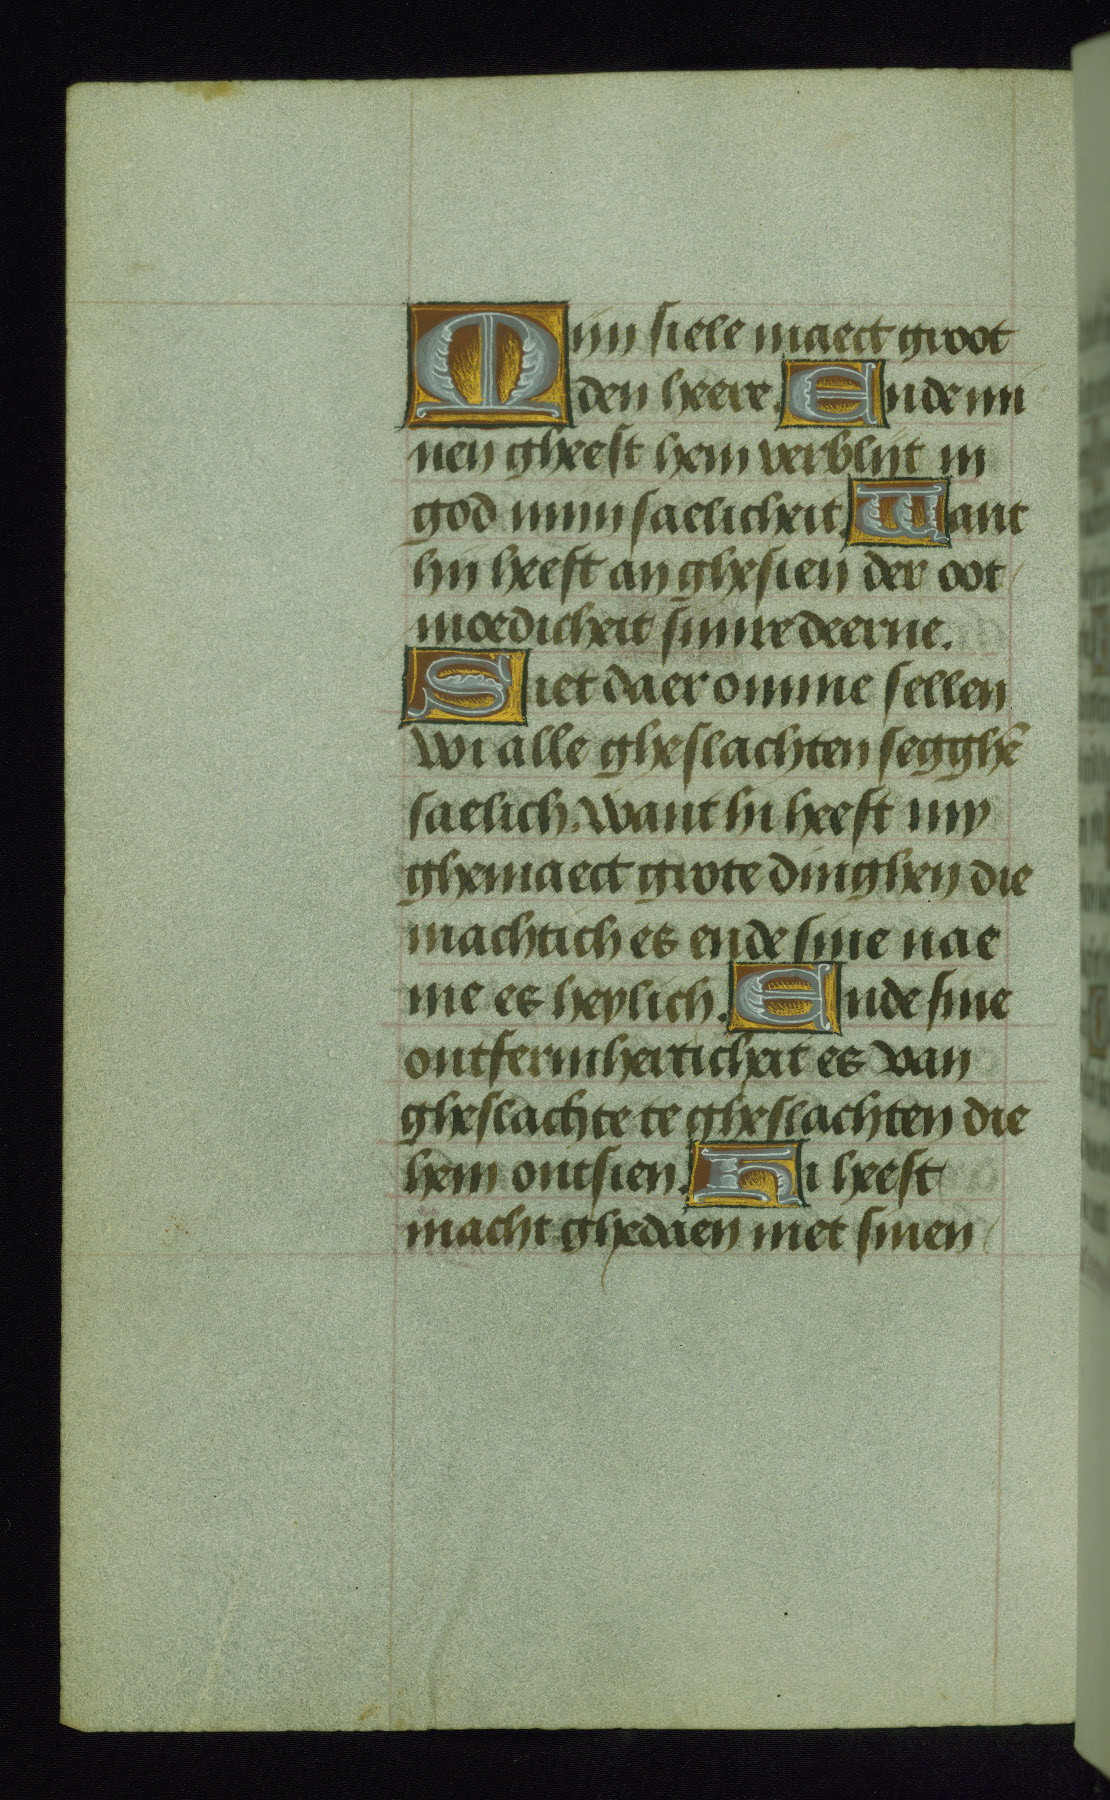 Mijn siele maect groot
den heere. Ende mi
nen gheest hem verblijt in
god minin saelicheit. Want
hij heeft anghesien der oot
moedicheit sinire deerne.
Siet daer omme sellen
wi alle gheslachten segghē
saelich. Want hi heeft my
ghemaect grote dinghen die
machtich es ende sine nae
me es heylich. Ende sine
ontfermherticheit es van
gheslachte te gheslachten die
hem ontsien. Hi heeft
macht ghedaen met sinen